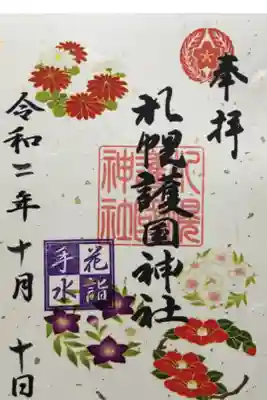 奉拝
札幌護国神社
札幌
護国
神社
花詣
手水
令和二年十月十日